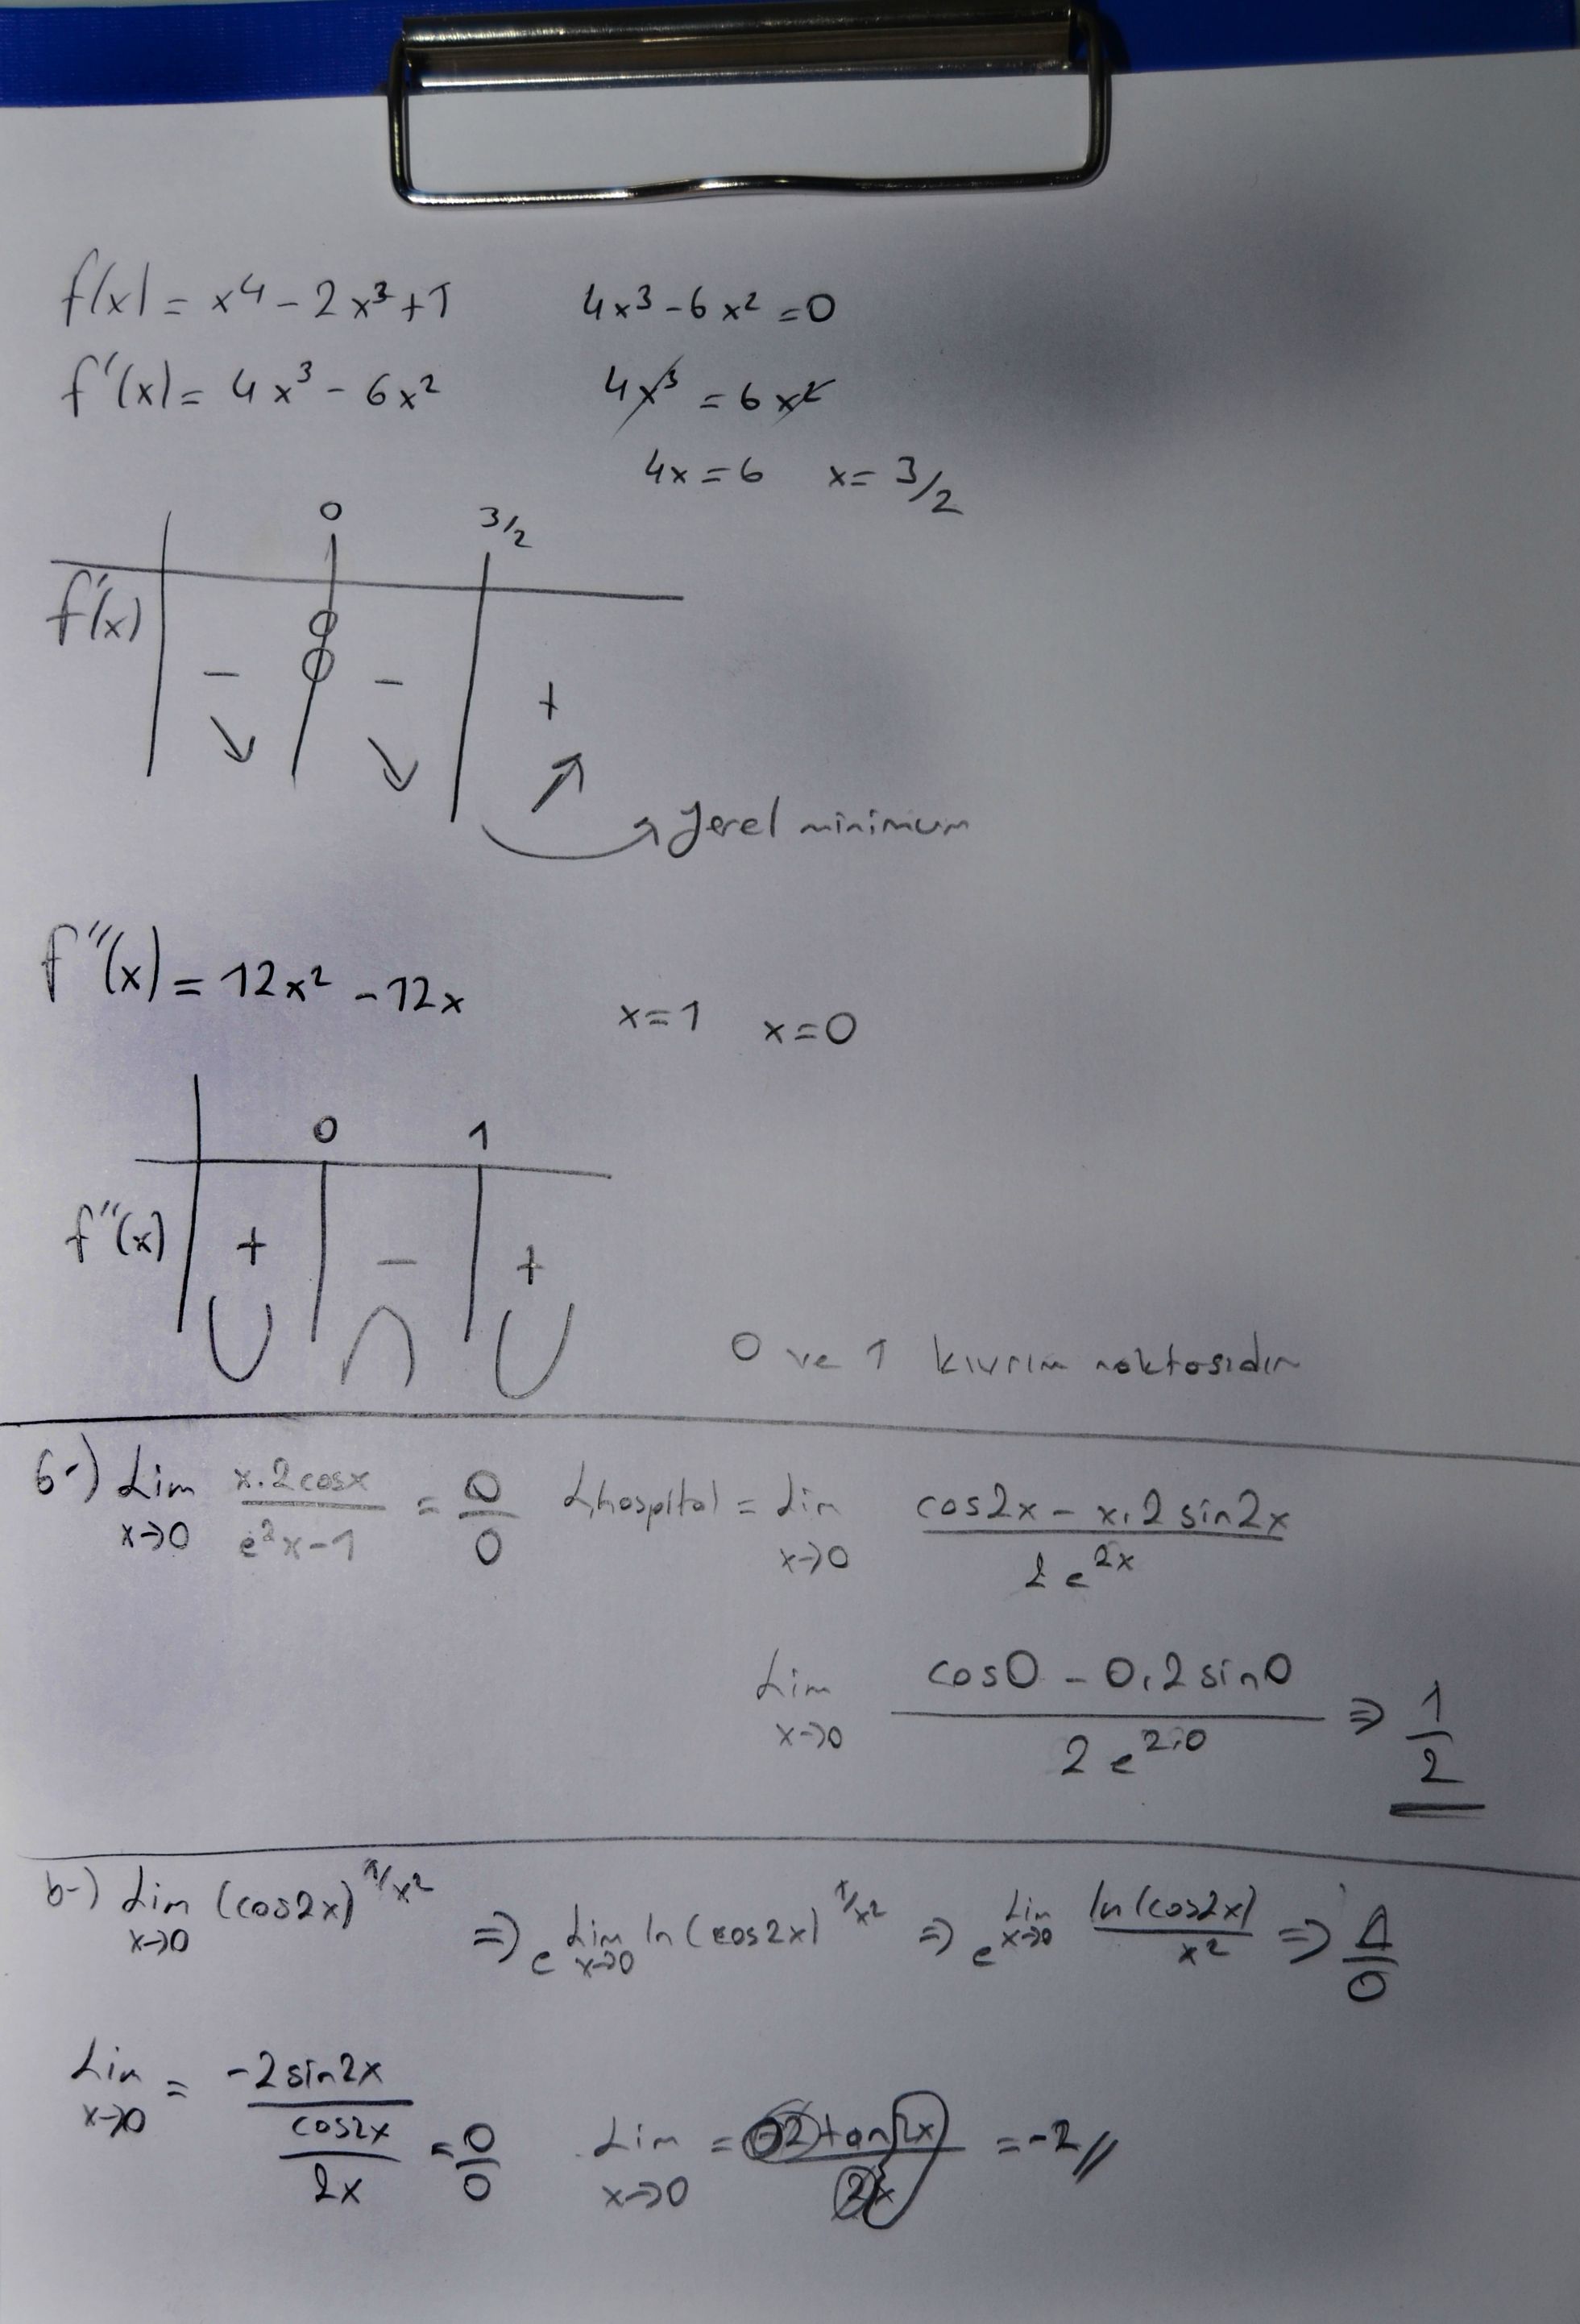 f(x) = x⁴ - 2x³ + 1
4x³ - 6x² = 0
f'(x) = 4x³ - 6x²
4x³ = 6x²
4x = 6 x = 3/2
0 3/2
f'(x)
- - +
yerel minimum
f''(x) = 12x² - 12x
x = 1 x = 0
0 1
f''(x) + - +
0 ve 1 kıvrım noktasıdır
6-) Lim x→0 x.2cosx / e²x-1 = 0/0 L'hospital = Lim x→0 cos2x - x.2sin2x / 2e^2x
Lim x→0 cos0 - 0.2sin0 / 2e^2.0 ⇒ 1/2
b-) Lim x→0 (cos2x)^1/x² ⇒ e^Lim x→0 ln(cos2x)^1/x² ⇒ e^Lim x→0 ln(cos2x) / x² ⇒ /0
Lim x→0 = -2sin2x / cos2x / 2x = 0/0 Lim x→0 = -2tan2x / 2x = -2//